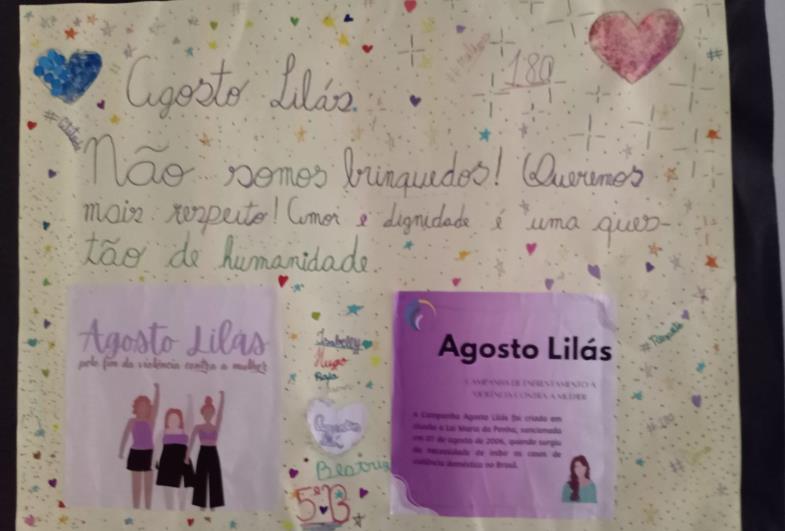 Agosto Lilás.
180
Não somos brinquedos! Queremos
mais respeito! Amor e dignidade é uma ques-
tão de humanidade.
Agosto Lilás
pelo fim da violência contra a mulher
Isabelly
Hugo
Beatriz
5ºB
Agosto Lilás
CAMPANHA DE ENFRENTAMENTO À
VIOLÊNCIA CONTRA A MULHER
A Campanha Agosto Lilás foi criada em
alusão a Lei Maria da Penha, sancionada
em 07 de agosto de 2006, quando surgiu
da necessidade de inibir os casos de
violência doméstica no Brasil.